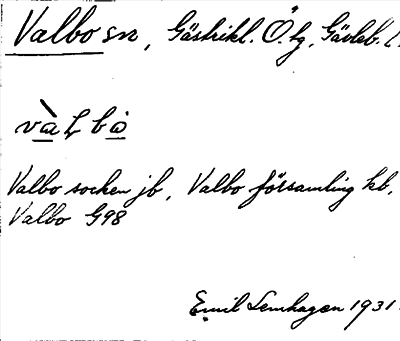 Valbo sn, Gästrikl. Ö. hg, Gävleb. l.
vàḷbo
Valbo socken jb, Valbo församling kb,
Valbo G98
Emil Lenhagen 1931.